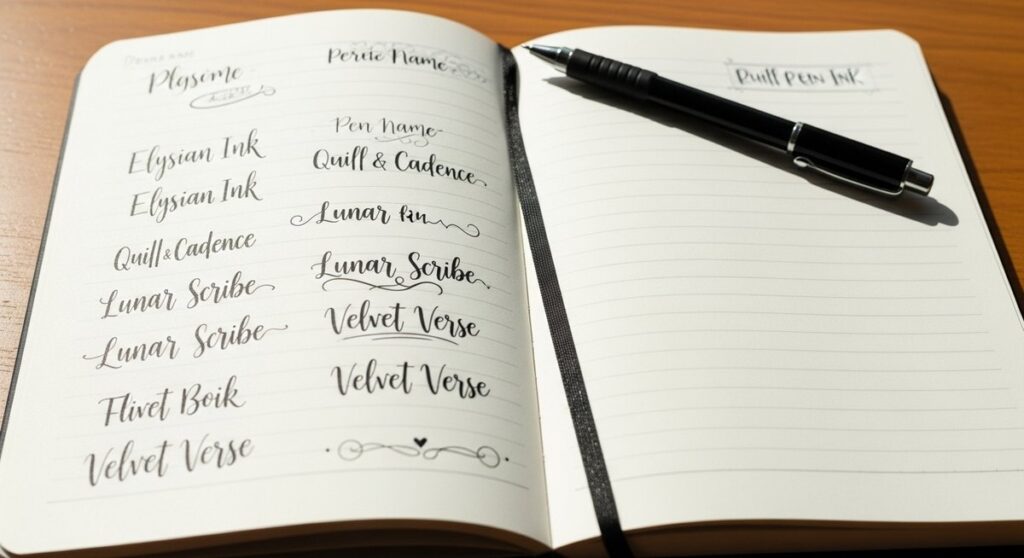 Plgsome
Elysian Ink
Elysian Ink
Quill & Cadence
Lunar Scribe
Lunar Scribe
Flivet Boik
Velvet Verse
Perite Name
Pen Name
Quill & Cadence
Lunar
Lunar Scribe
Velvet Verse
Velvet Verse
Ink